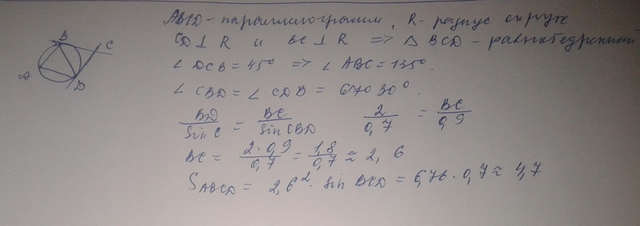 ABCD - параллелограмм, R - радиус окруж
CD ⊥ R и BC ⊥ R => △ BCD - равнобедренный
∠ DCB = 45° => ∠ ABC = 135°.
∠ CBD = ∠ CDB = 67°30°.
BD/sin C = BC/sin CBD 2/0,7 = BC/0,9
BC = 2·0,9/0,7 = 1,8/0,7 ≈ 2,6
S ABCD = 2,6² · sin BCD = 6,76 · 0,7 ≈ 4,7
B
C
A
D